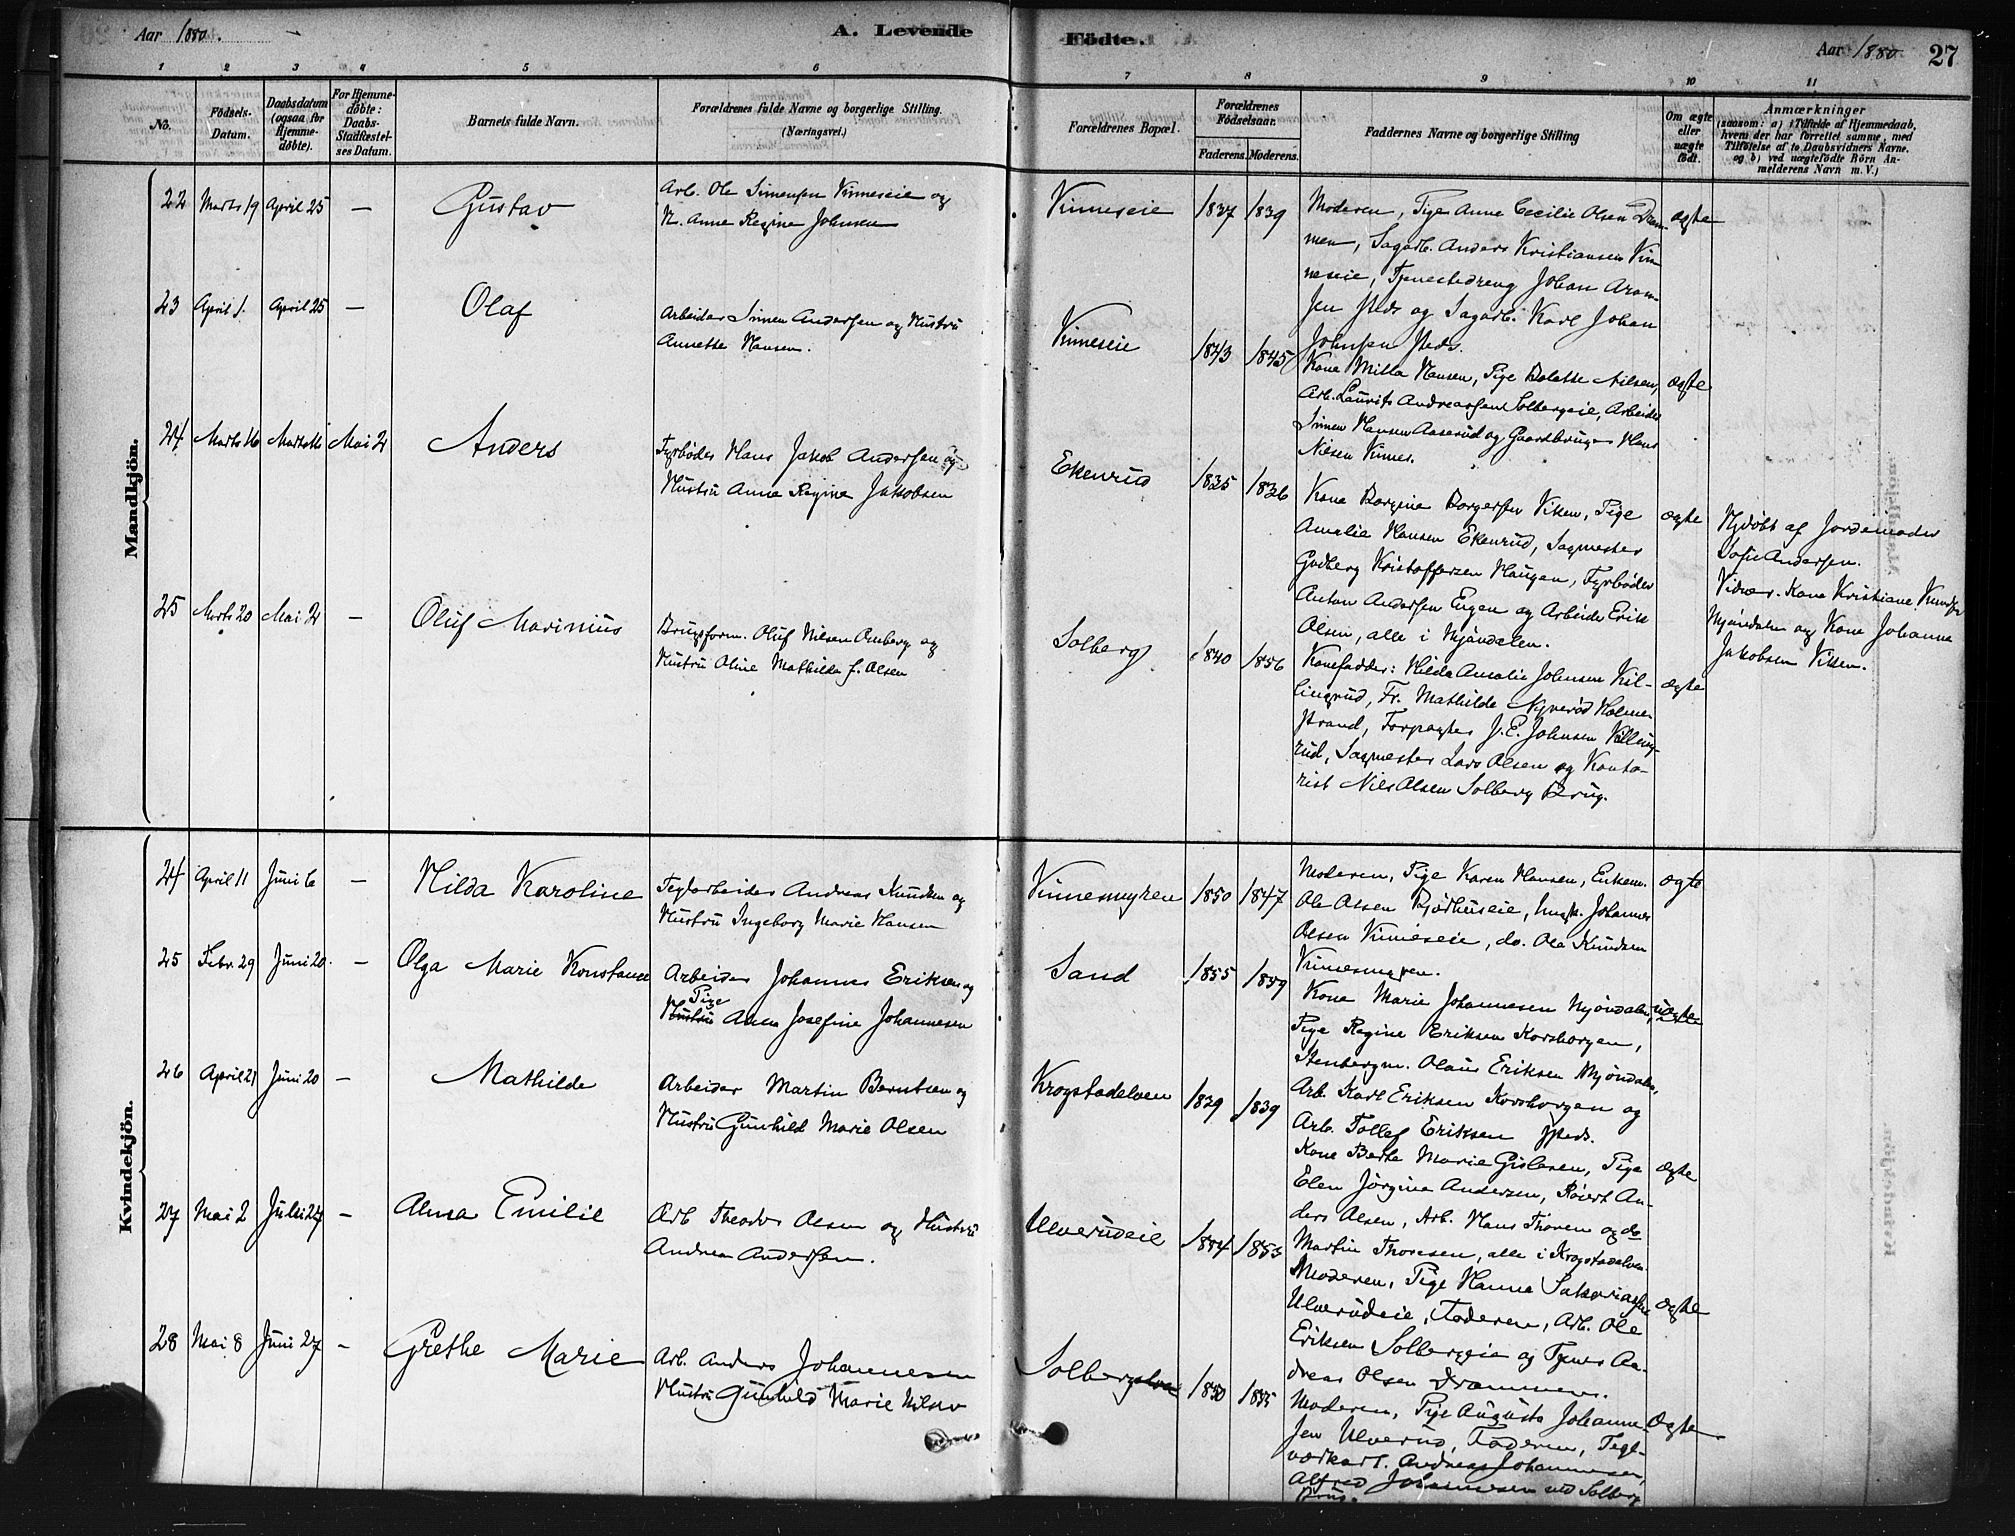 Aar 1880.
A. Levende
Födte.
Aar 1880
27
1 2 3 4 5 6 7 8 9 10 11
No.
Födsels-Datum.
Daabsdatum (ogsaa for Hjemme-döbte).
For Hjemme-döbte: Daabs-Stadfæstel-ses Datum.
Barnets fulde Navn.
Forældrenes fulde Navne og borgerlige Stilling.
(Næringsvei.)
Forældrenes Bopæl.
Forældrenes Födselsaar.
Faderens. Moderens.
Faddernes Navne og borgerlige Stilling
Om ægte eller uægte födt.
Anmærkninger
(saasom: a) i Tilfælde af Hjemmedaab,
hvem der har forrettet samme, med
Tilföielse af to Daabsvidners Navne.
og b) ved uægtefödte Börn An-
melderens Navn m. V.)
Mandkjön.
22 Marts 19 April 25 — Gustav
Arb. Ole Simensen Vinneseie og
H. Anne Regine Johnsen
Vinneseie 1837 1839
Moderen, Pige Anne Cecilie Olsen Dram-
men, Sagarb. Anders Kristiansen Vin-
neseie, Tjenestedreng Johan Aram-
sen Steds og Sagarb. Karl Johan
Johnsen Steds.
ægte
23 April 1. April 25 — Olaf
Arbeider Simen Andersen og Hustru
Annette Hansen.
Vinneseie 1843 1845
Kone Milla Hansen, Pige Bolette Nilsen,
Arb. Laurits Andreassen Solbergeie, Arbeider
Simen Hansen Aaserud og Gaardbruger Hans
Nilsen Vinnes.
ægte
24 Marts 16 Marts 16 Mai 2 Anders
Fyrböder Hans Jakob Andersen og
Hustru Anne Regine Jakobsen
Ekenrud 1835 1836
Kone Borgine Borgersen Viken, Pige
Amalie Hansen Ekenrud, Sagmester
Gudberg Kristoffersen Haugen, Fyrböder
Anton Andersen Engen og Arbeider Erik
Olsen, alle i Mjöndalen.
ægte
Hjdöbt af Jordemoder
Sofie Andersen.
Vidner. Kone Kristiane Knudsen
Mjöndalen og Kone Johanne
Jakobsen Viken.
25 Marts 20 Mai 2 — Oluf Marinius
Brugsform. Oluf Nilsen Omberg og
Hustru Oline Mathilde f. Olsen
Solberg 1840 1856
Konefadder: Hilda Amalie Johnsen Kil-
lingrud, Fr. Mathilde Nyveröd Holme-
strand, Forpagter J. E. Johnsen Killing-
rud, Sagmester Lars Olsen og Konto-
rist Nils Olsen Solberg Brug.
ægte
Kvindekjön.
24 April 11 Juni 6 — Hilda Karoline
Teglarbeider Andreas Knudsen og
Hustru Ingeborg Marie Hansen
Vinnesmyren 1850 1847
Moderen, Pige Karen Hansen, Enkem.
Ole Olsen Rjödhuseie, Ungk. Johannes
Olsen Vinneseie, do. Ole Knudsen
Vinnesmyren.
ægte
25 Febr. 29 Juni 20. — Olga Marie Konstance
Arbeider Johannes Eriksen og
Pige
Hustru Anna Josefine Johannesen
Sand 1855 1859
Kone Marie Johannesen Mjöndalen,
Pige Regine Eriksen Korsborgen,
Stenbergm. Olaus Eriksen Mjöndalen,
Arb. Karl Eriksen Korsborgen og
Arb. Tollef Eriksen Steds.
uægte
26 April 21 Juni 20 — Mathilde
Arbeider Martin Berntsen og
Hustru Gunhild Marie Olsen
Krogstadelven 1839 1839
Kone Berte Marie Gislesen, Pige
Elen Jörgine Andersen, Röiert An-
ders Olsen, Arb. Hans Thoren og do
Martin Thoresen, alle i Krogstadelven.
ægte
27 Mai 2 Juli 24 — Alma Emilie
Arb Theodor Olsen og Hustru
Andrea Andersen.
Ulverudeie 1854 1853
Moderen, Pige Hanna Sakariassen
Ulverudeie, Faderen, Arb. Ole
Eriksen Solbergeie og Tjener An-
dreas Olsen Drammen.
ægte
28 Mai 8 Juni 27 — Grethe Marie
Arb. Anders Johannesen
Hustru Gunhild Marie Nilsen
Solbergelven 1850 1855
Moderen, Pige Augusta Johanne-
sen Ulverud, Faderen, Tegl-
værkarb. Andreas Johannesen,
Alfred Johannesen ved Solberg
Brug.
Ægte